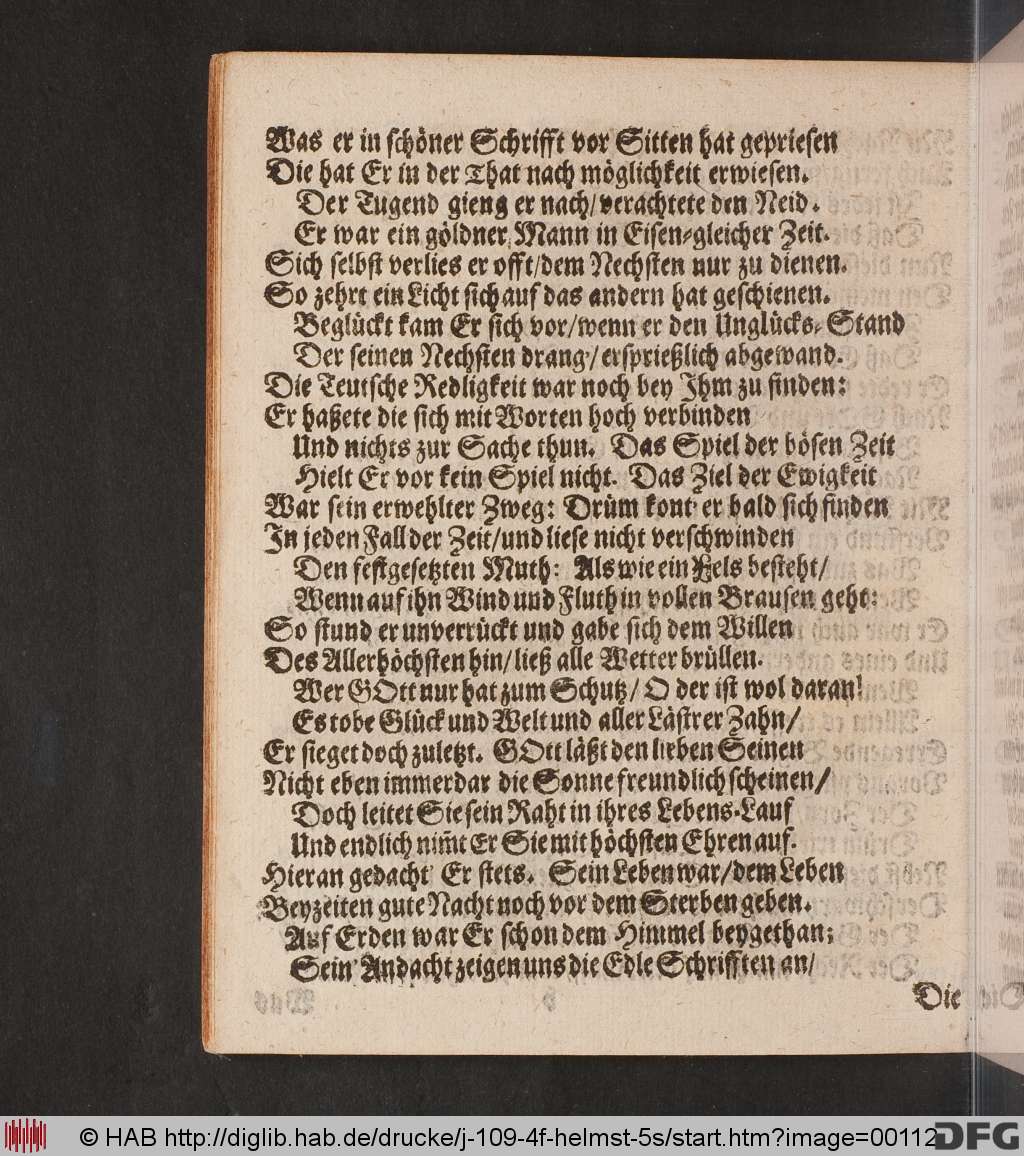 Was er in schöner Schrifft vor Sitten hat gepriesen
Die hat Er in der That nach möglichkeit erwiesen.
Der Tugend gieng er nach/ verachtete den Neid.
Er war ein göldner Mann in Eisen-gleicher Zeit.
Sich selbst verlies er offt/ dem Nechsten nur zu dienen.
So zehrt ein Licht sich auf das andern hat geschienen.
Beglückt kam Er sich vor/ wenn er den Unglücks-Stand
Der seinen Nechsten drang/ ersprießlich abgewand.
Die Teutsche Redligkeit war noch bey Ihm zu finden:
Er haßete die sich mit Worten hoch verbinden
Und nichts zur Sache thun. Das Spiel der bösen Zeit
Hielt Er vor kein Spiel nicht. Das Ziel der Ewigkeit
War sein erwehlter Zweg: Drüm kont' er bald sich finden
In jeden Fall der Zeit/ und liese nicht verschwinden
Den festgesetzten Muth: Als wie ein Fels besteht/
Wenn auf ihn Wind und Fluth in vollen Brausen geht:
So stund er unverrückt und gabe sich dem Willen
Des Allerhöchsten hin/ ließ alle Wetter brüllen.
Wer GOtt nur hat zum Schutz/ O der ist wol daran!
Es tobe Glück und Welt und aller Lästrer Zahn/
Er sieget doch zuletzt. GOtt läßt den lieben Seinen
Nicht eben immerdar die Sonne freundlich scheinen/
Doch leitet Sie sein Raht in ihres Lebens-Lauf
Und endlich nim̃t Er Sie mit höchsten Ehren auf.
Hieran gedacht' Er stets. Sein Leben war/ dem Leben
Beyzeiten gute Nacht noch vor dem Sterben geben.
Auf Erden war Er schon dem Himmel beygethan;
Sein' Andacht zeigen uns die Edle Schrifften an/
Die
© HAB http://diglib.hab.de/drucke/j-109-4f-helmst-5s/start.htm?image=00112
DFG